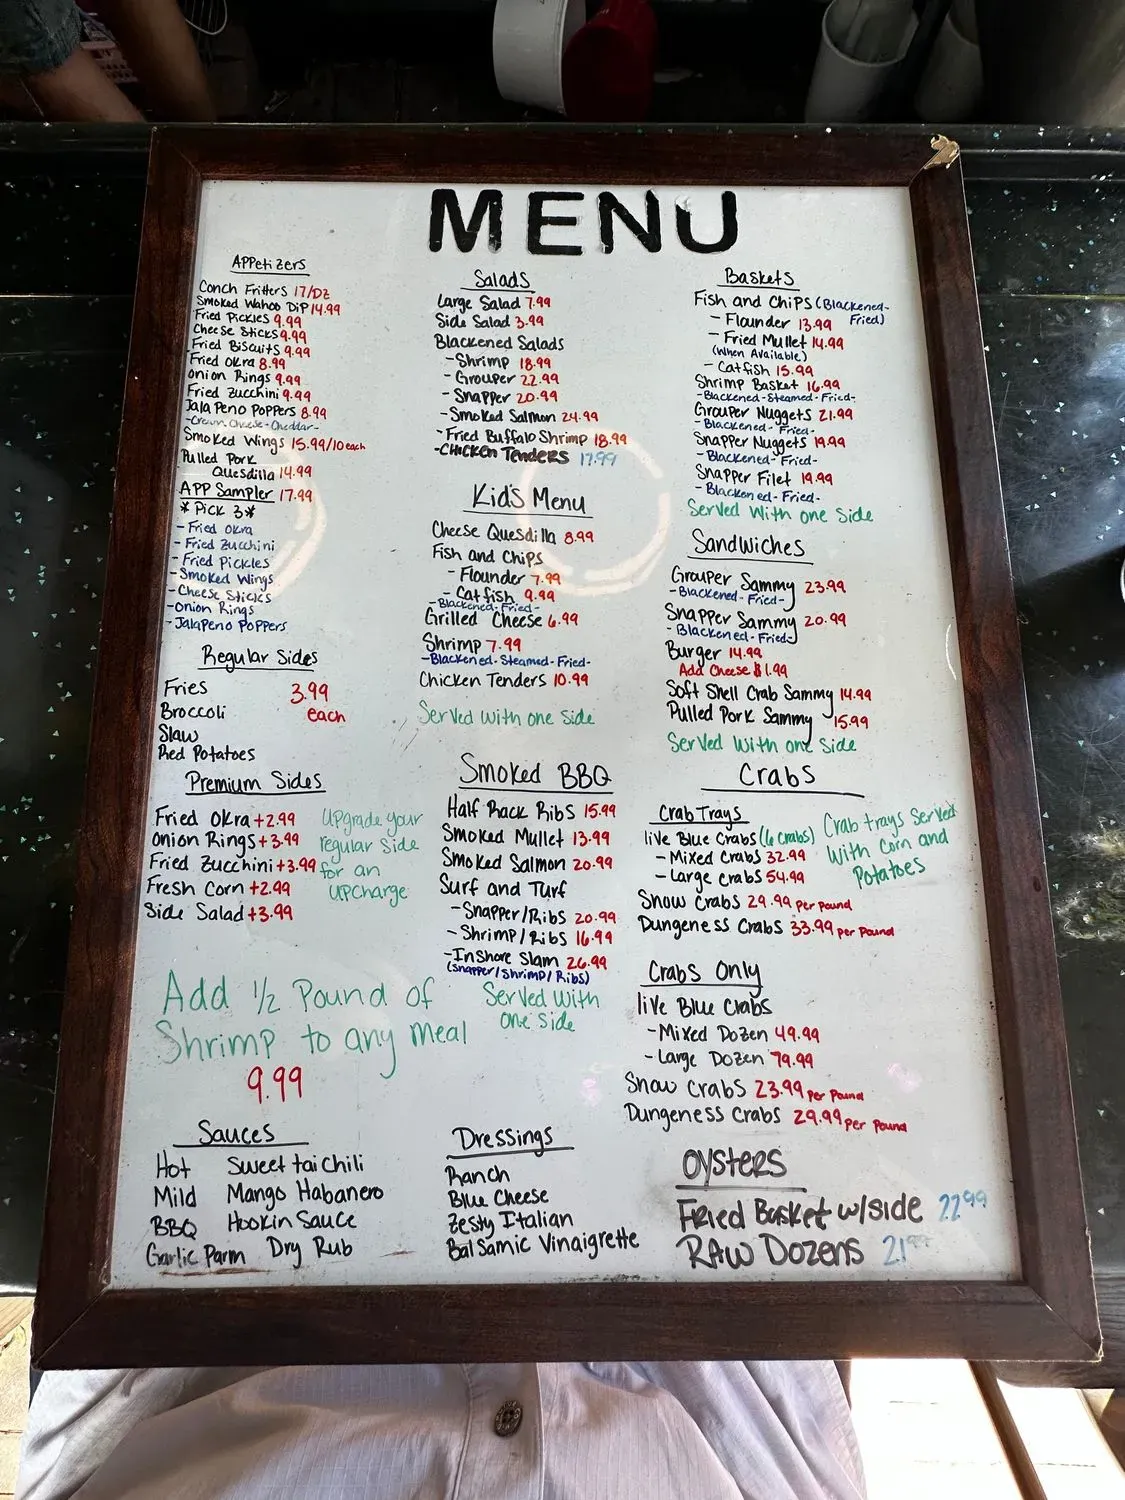 MENU
APPetizers
Conch Fritters 17/Dz
Smoked Wahoo DiP 14.99
Fried Pickles 9.99
Cheese Sticks 9.99
Fried Biscuits 9.99
Fried Okra 8.99
Onion Rings 9.99
Fried Zucchini 9.99
JalaPeno PoPPers 8.99
-Cream Cheese-Cheddar-
Smoked Wings 15.99/10 each
Pulled Pork
Quesdilla 14.99
APP Sampler 17.99
*Pick 3*
-Fried Okra
-Fried Zucchini
-Fried Pickles
-Smoked Wings
-Cheese Sticks
-Onion Rings
-JalaPeno PoPPers
Regular Sides
Fries 3.99
Broccoli each
Slaw
Red Potatoes
Premium Sides
Fried Okra +2.99
Onion Rings +3.99
Fried Zucchini +3.99
Fresh Corn +2.99
Side Salad +3.99
UPgrade your
regular side
for an
UPCharge
Add 1/2 Pound of
Shrimp to any meal
9.99
Sauces
Hot Sweet tai Chili
Mild Mango Habanero
BBQ Hookin Sauce
Garlic Parm Dry Rub
Salads
Large Salad 7.99
Side Salad 3.99
Blackened Salads
-Shrimp 18.99
-Grouper 22.99
-Snapper 20.99
-Smoked Salmon 24.99
-Fried Buffalo Shrimp 18.99
-CHicken Tenders 17.99
Kid's Menu
Cheese Quesdilla 8.99
Fish and Chips
-Flounder 7.99
-Catfish 9.99
-Blackened-Fried-
Grilled Cheese 6.99
Shrimp 7.99
-Blackened-Steamed-Fried-
Chicken Tenders 10.99
Served with one side
Smoked BBQ
Half Rack Ribs 15.99
Smoked Mullet 13.99
Smoked Salmon 20.99
Surf and Turf
-Snapper/Ribs 20.99
-Shrimp/Ribs 16.99
-InShore Slam 26.99
(Snapper/Shrimp/Ribs)
Served with
one side
Dressings
Ranch
Blue Cheese
Zesty Italian
Balsamic Vinaigrette
Baskets
Fish and Chips (Blackened-
Fried)
-Flounder 13.99
-Fried Mullet 14.99
(When Available)
-Catfish 15.99
Shrimp Basket 16.99
-Blackened-Steamed-Fried-
Grouper Nuggets 21.99
-Blackened-Fried-
Snapper Nuggets 19.99
-Blackened-Fried-
Snapper Filet 19.99
-Blackened-Fried-
Served With one Side
Sandwiches
Grouper Sammy 23.99
-Blackened-Fried-
Snapper Sammy 20.99
-Blackened-Fried-
Burger 14.99
Add Cheese $1.99
Soft Shell Crab Sammy 14.99
Pulled Pork Sammy 15.99
Served With one Side
Crabs
Crab Trays
live Blue Crabs (6 crabs)
-Mixed Crabs 32.99
-Large crabs 54.99
Snow Crabs 29.99 per Pound
Dungeness Crabs 33.99 per Pound
Crab trays Served
With Corn and
Potatoes
Crabs Only
live Blue Crabs
-Mixed Dozen 49.99
-Large Dozen 79.99
Snow Crabs 23.99 per Pound
Dungeness Crabs 29.99 per Pound
OYSTERS
FRied Basket w/side 22.99
RAW Dozens 21.99